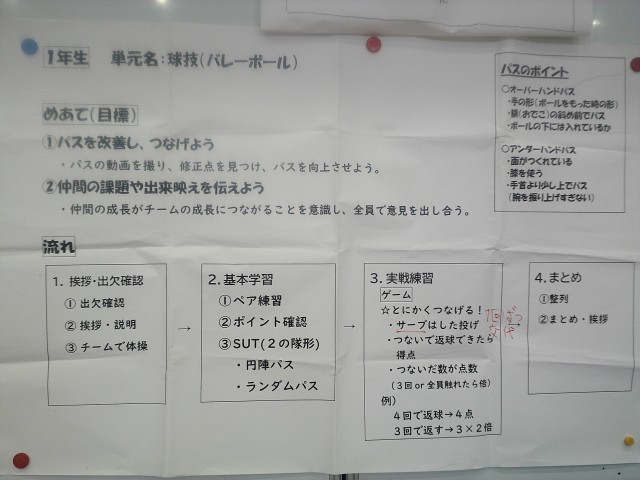 1年生　単元名：球技(バレーボール)
めあて(目標)
①パスを改善し、つなげよう
・パスの動画を撮り、修正点を見つけ、パスを向上させよう。
②仲間の課題や出来映えを伝えよう
・仲間の成長がチームの成長につながることを意識し、全員で意見を出し合う。
パスのポイント
○オーバーハンドパス
・手の形(ボールをもった時の形)
・額(おでこ)の斜め前でパス
・ボールの下には入れているか
○アンダーハンドパス
・面がつくれている
・膝を使う
・手首より少し上でパス
(腕を振り上げすぎない)
流れ
1. 挨拶・出欠確認
① 出欠確認
② 挨拶・説明
③ チームで体操
→
2. 基本学習
①ペア練習
②ポイント確認
③SUT(２の隊形)
・円陣パス
・ランダムパス
→
3. 実戦練習
ゲーム
☆とにかくつなげる！
・サーブはした投げ
・つないで返球できたら
得点
・つないだ数が点数
(３回 or 全員触れたら倍)
例)
４回で返球→４点
３回で返す→３×２倍
4. まとめ
①整列
②まとめ・挨拶